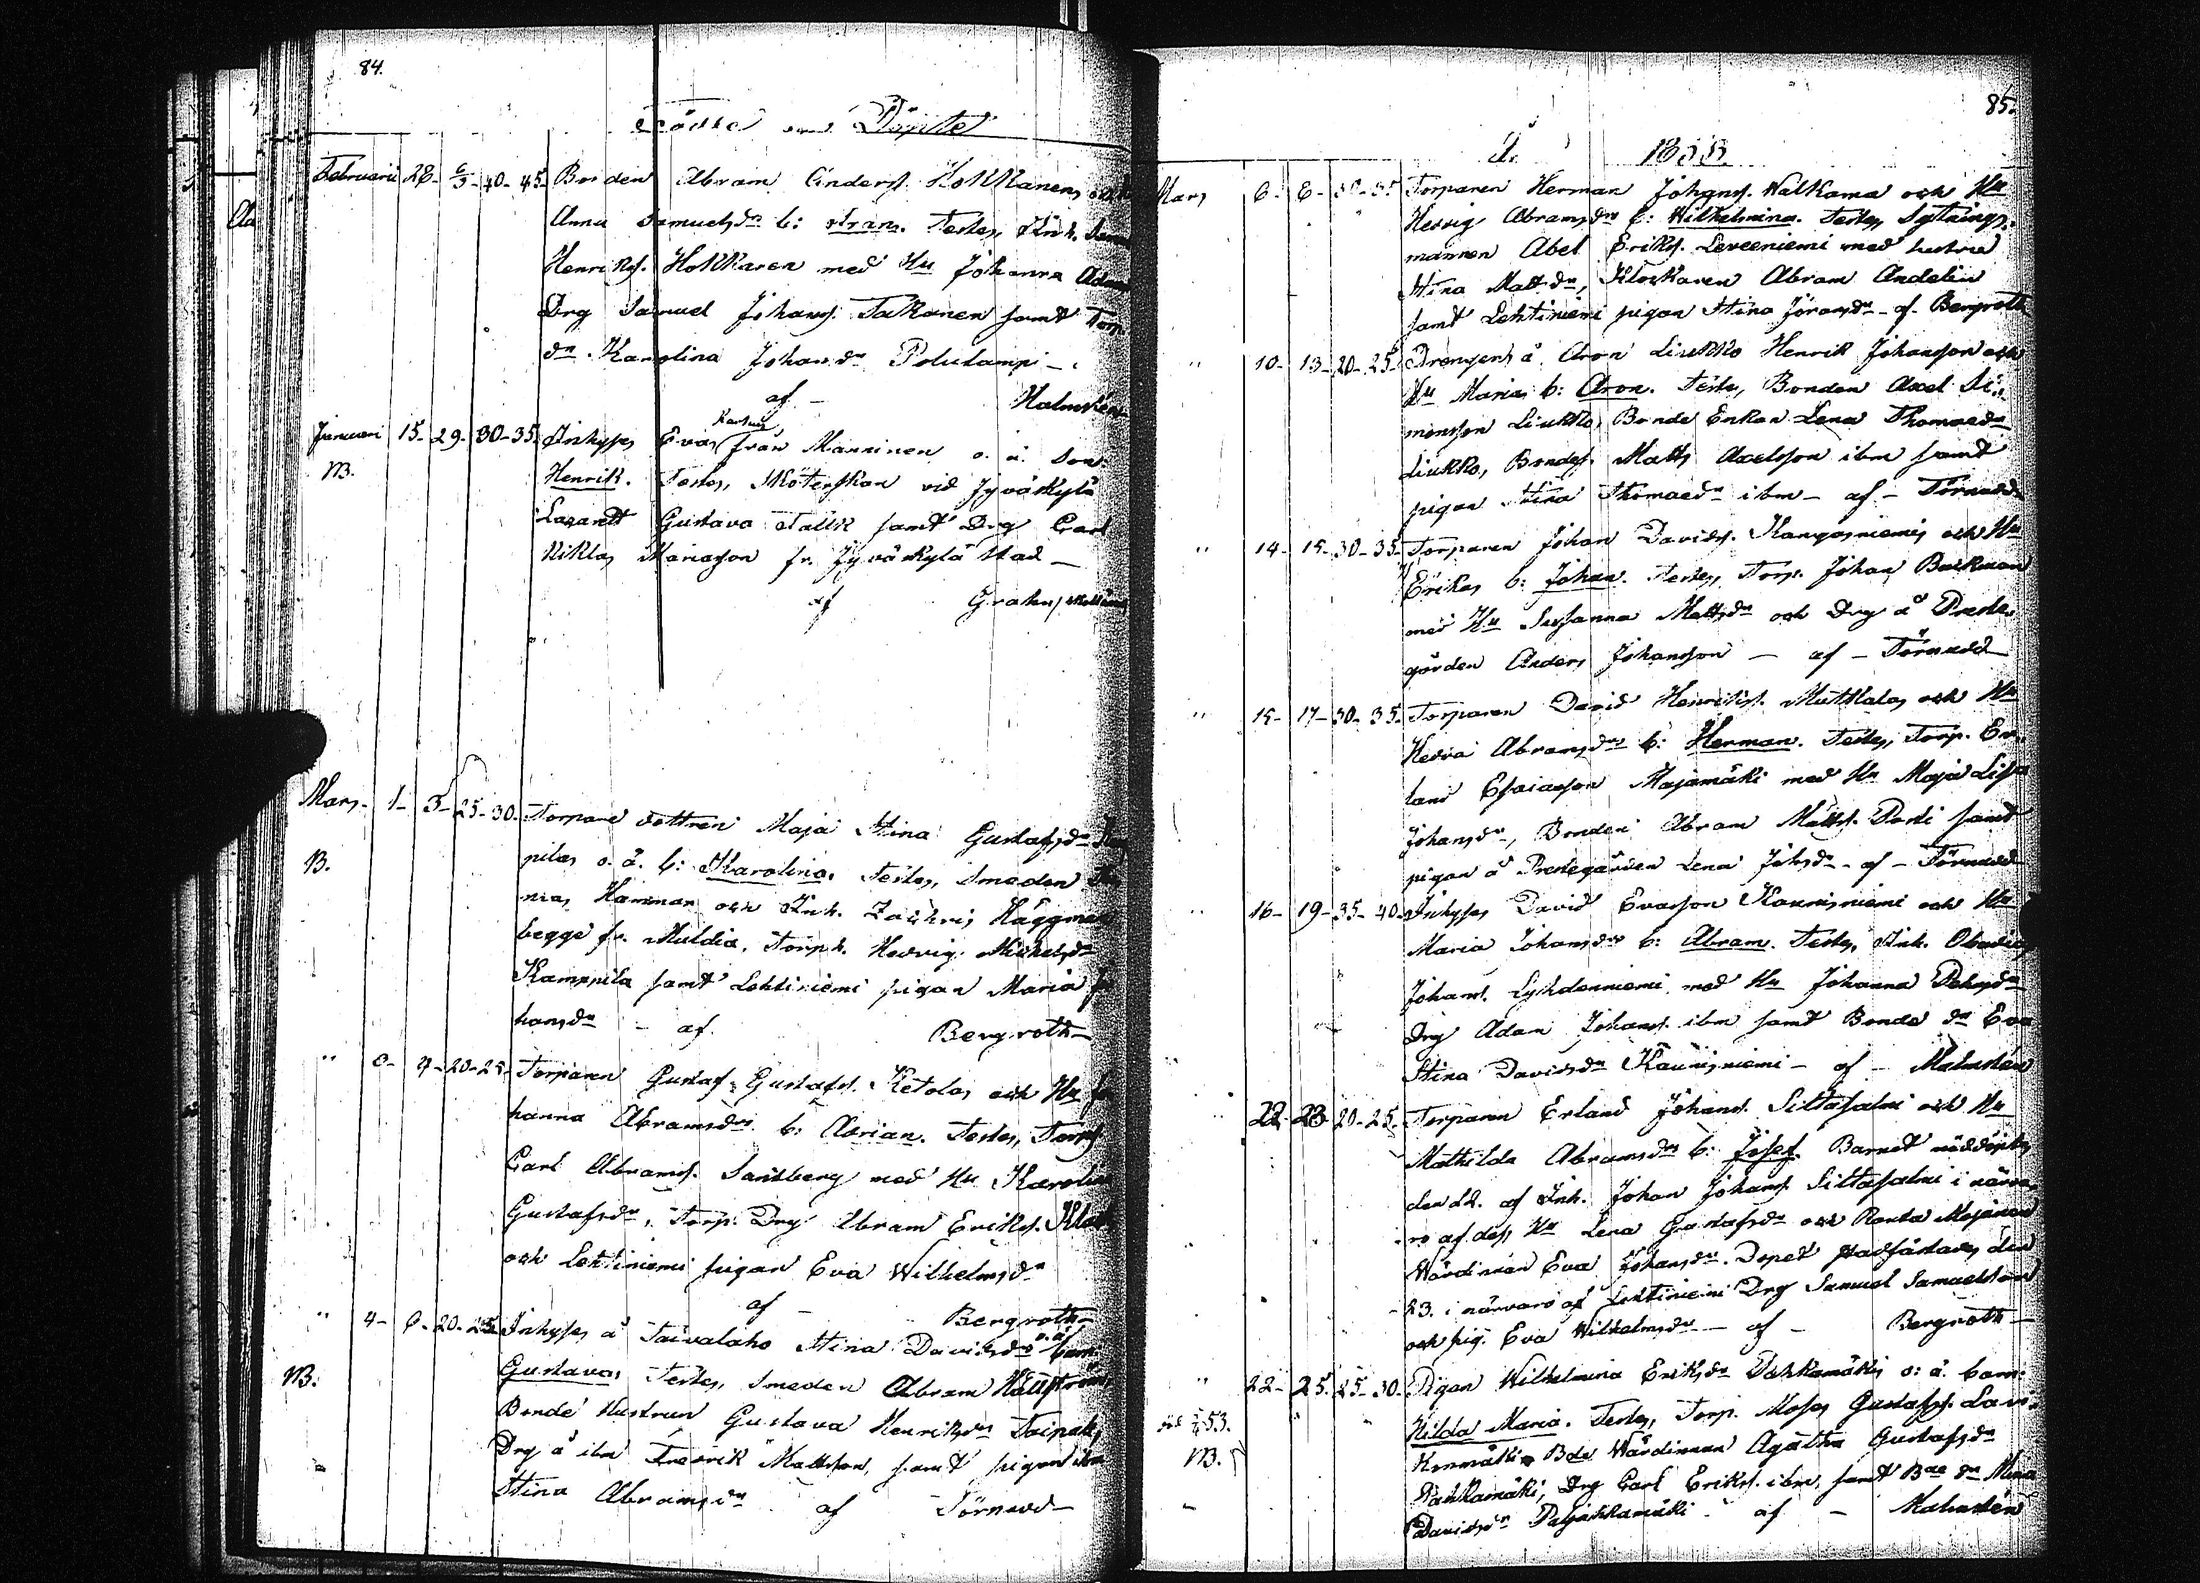 84.
Födde och Döpte
Februarii 28- 6/3- 40- 45- Bonden Abram Anders. Hokkanen och
Anna Samuelsdr b: Abram. Testes, Inh.
Henriks. Hokkanen med Hu Johanna Adam
Drg Samuel Johans. Takanen samt Torp.
dr. Karolina Johansdr Polulampi -
af - Malmstén
Januari 15- 29- 30-35- Inhyses Eva från Manninen o. ä. son
NB. Henrik. Testes, Sköterskan vid Jyväskylä
Lazarett Gustava Tallk samt Drg Carl
Niklas Mariasson fr. Jyväskylä stad -
af Grahn
Mars- 1- 3- 25-30. Torpare dottren Maja Stina Gustafsdr
NB. pila o. ä. b: Karolina. Testes, Smeden
nias Hamman och Inh. Zachris Häggman
begge fr. Muldia, Torp.h. Hedvig Michelsdr
Kamppila samt Lehtiniemi pigan Maria Jo
hansdr - af. Bergroth-
" 4-20-25- Torparen Gustaf Gustafs. Ketola och Hu Jo
hanna Abramsdr b: Adrian. Testes, Torp.
Carl Abrams. Sandberg med Hu Karolina
Gustafsdr, Torp. Drg Abram Eriks.
och Lehtiniemi pigan Eva Wilhelmsdr
af - Bergroth-
" 4- 6- 20-25 Inhyses å Taivalaho Stina Davidsdr o. ä. barn
NB. Gustava. Testes, Smeden Abram Hällström
Bonde Hustrun Gustava Henriksdr Taipale,
Drg å ibm Fredrik Mattsson, samt pigan ibm
Stina Abramsdr af Törnudd-
85.
År 1855.
Mars 6- 8- 30-35 Torparen Herman Johans. Walkama och Hu
Hedvig Abramsdr b: Wilhelmina. Testes, Sytnings-
mannen Abel Eriks. Leveeniemi med hustru
Stina Mattsdr, Klockaren Abram Andelin
samt Lehtiniemi pigan Stina Jöransdr - af - Bergroth
" 10- 13-20-25- Drengen å Aron Liukko Henrik Johansson och
Hu Maria b: Aron. Testes, Bonden Axel Si-
monsson Liukko, Bonde Enkan Lena Thomaedr
Liukko, Bondes. Matts Axelsson ibm samt
pigan Stina Thomaedr ibm - af - Törnudd
" 14- 15-30-35- Torparen Johan Davids. Kangasniemi och Hu
Erika b: Johan. Testes, Torp. Johan Backman
med Hu Susanna Mattsdr och Drg å Preste-
gården Anders Johansson - af - Törnudd
" 15- 17-30-35- Torparen David Henriks. Muttkala och Hu
Hedva Abramsdr b: Herman. Testes, Torp. Er-
land Esaiasson Majamäki med Hu Maja Lisa
Johansdr, Bonden Abram Matts. Pouti samt
pigan å Prestegården Lena Johsdr - af - Törnudd
" 16- 19-35-40- Inhyses David Evasson Kaunisniemi och Hu
Maria Johansdr b: Abram. Testes, Inh. Obadias
Johans. Lyhdenniemi med Hu Johanna Pehrsdr
Drg Adam Johans. ibm samt Bonde dr Eva
Stina Davidsdr Kaunisniemi - af - Malmstén
22- 23- 20-25- Torparen Erland Johans. Siltasalmi och Hu
Mathilda Abramsdr b: Josef. Barnet nöddöptes
den 22. af Inh. Johan Johans. Siltasalmi i närva-
ro af dess Hu Lena Gustafsdr och Ranta Mojanen
Wärdinnan Eva Johansdr. Dopet stadfästades den
23. i närvaro af Lehtiniemi Drg Samuel Samuelsson
och pig. Eva Wilhelmsdr - af - Bergroth -
" 22- 25. 25-30- Pigan Wilhelmina Eriksdr Pahkamäki o: ä. barn:
53. Hilda Maria. Testes, Torp. Moses Gustafs.
NB. Bde Wärdinnan Agatha Gustafsdr
Pahkamäki, Drg Carl Eriks. ibm, samt Bde dr Stina
Davidsdr Paljakkamäki - af - Malmstén